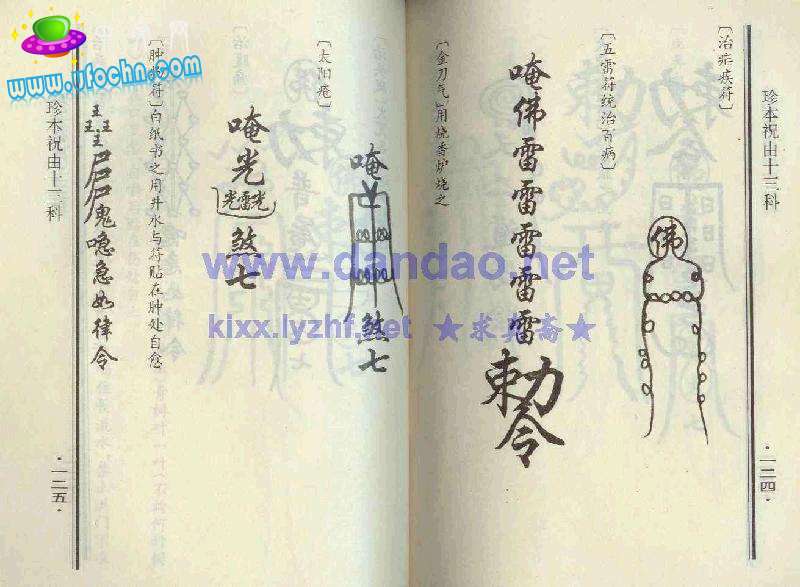 珍本祝由十三科
·一二四·
〔治疟疾符〕
佛
〔五雷符统治百病〕
唵佛雷雷雷雷雷敕令
〔金刀气〕用烧香炉烧之
〔太阳疮〕
唵
煞七
唵光
光雷光
煞七
白纸书之用井水与符贴在肿处自愈
王王王王
尸尸尸鬼
急如律令
珍本祝由十三科
·一二五·
www.ufochn.com
www.dandao.net
kixx.lyzhf.net ★求真斋★